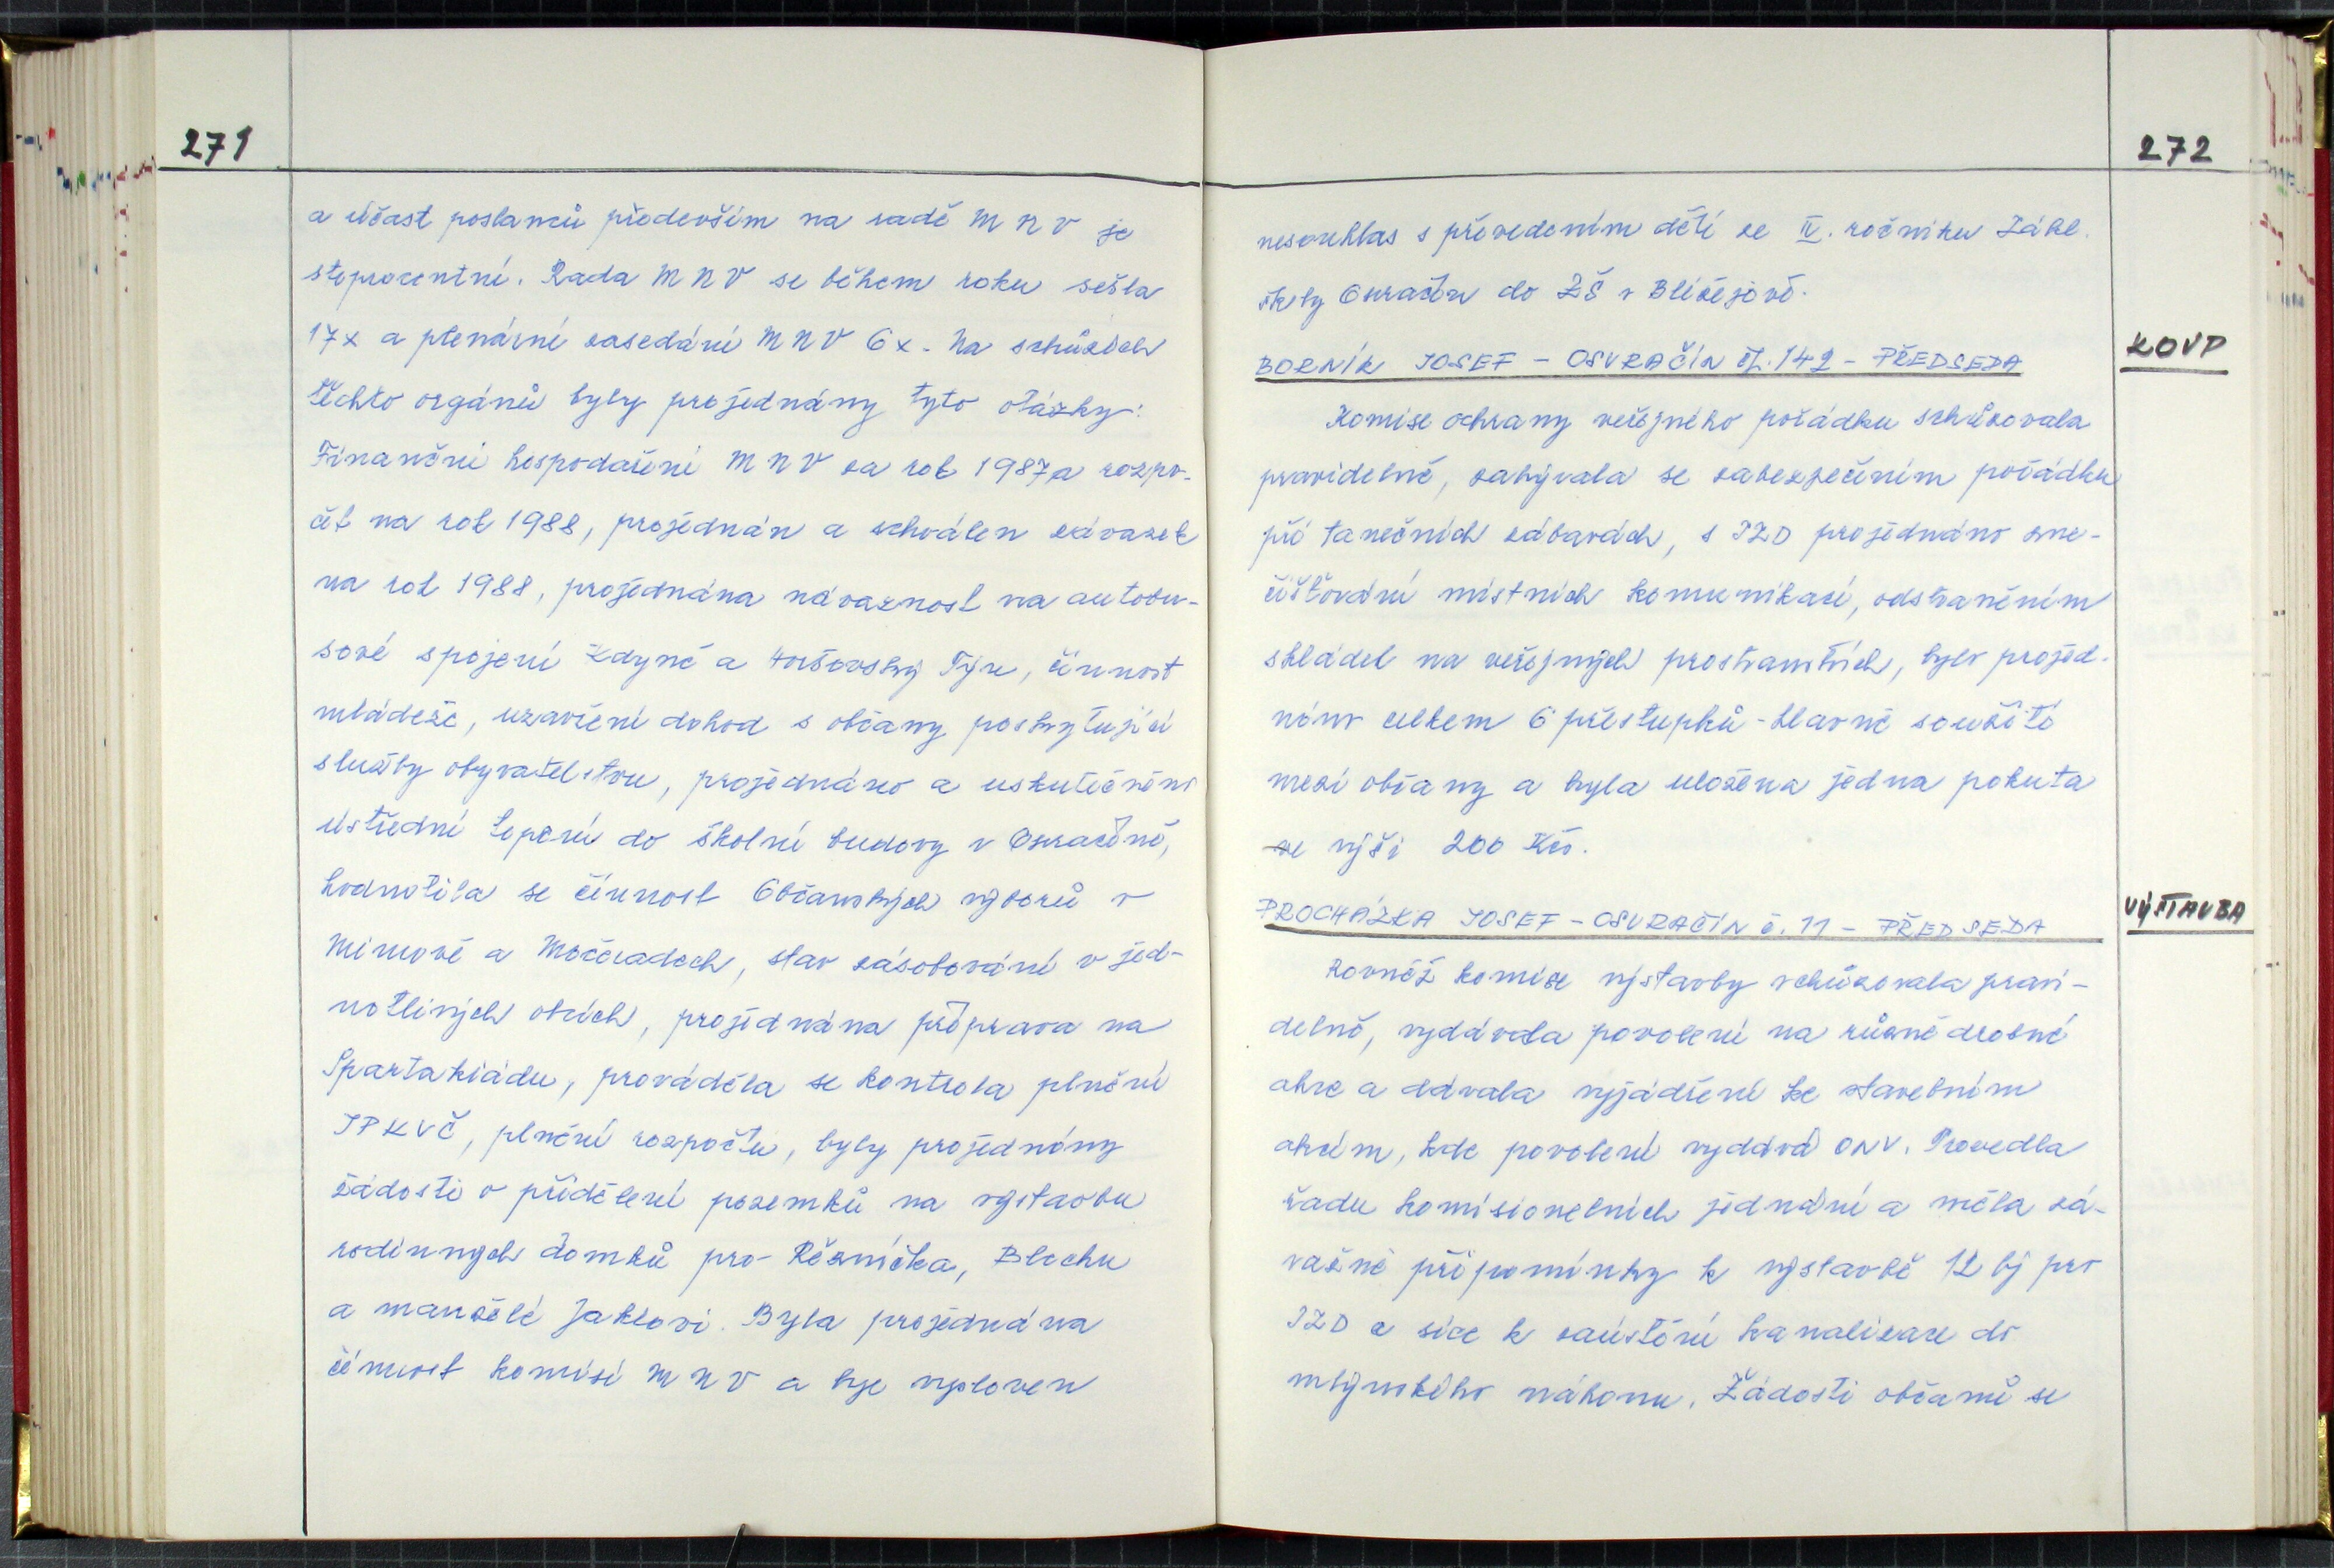 271
a účast poslanců především na radě MNV je
stoprocentní. Rada MNV se během roku sešla
17x a plenární zasedání MNV 6x. Na schůzích
těchto orgánů byly projednány tyto otázky:
Finanční hospodaření MNV za rok 1987 a rozpo-
čet na rok 1988, projednán a schválen závazek
na rok 1988, projednána návaznost na autobu-
sové spojení Kdyně a Horšovský Týn, činnost
mládeže, uzavření dohod s občany poskytující
služby obyvatelstvu, projednáno a uskutečněno
ústřední topení do školní budovy v Osvračíně,
hodnotila se činnost Občanských výborů v
Mimově a Močeradech, stav zásobování v jed-
notlivých obcích, projednána příprava na
Spartakiádu, prováděla se kontrola plnění
JPKVČ, plnění rozpočtu, byly projednány
žádosti o přidělení pozemků na výstavbu
rodinných domků pro Řezníčka, Blochu
a manželé Jaklovi. Byla projednána
činnost komisí MNV a byl vysloven
272
nesouhlas s převedením dětí ze IV. ročníku Zákl.
školy Osvračín do ZŠ v Blížejově.
KOVP
BORNÍK JOSEF - OSVRAČÍN čp. 142 - PŘEDSEDA
Komise ochrany veřejného pořádku schůzovala
pravidelně, zabývala se zabezpečením pořádku
při tanečních zábavách, s JZD projednáno zne-
čišťování místních komunikací, odstraněním
skládek na veřejných prostranstvích, bylo projed-
náno celkem 6 přestupků - hlavně soužití
mezi občany a byla uložena jedna pokuta
ve výši 200 Kčs.
VÝSTAVBA
PROCHÁZKA JOSEF - OSVRAČÍN č. 11 - PŘEDSEDA
Rovněž komise výstavby schůzovala pravi-
delně, vydávala povolení na různé drobné
akce a dávala vyjádření ke stavebním
akcím, kde povolení vydává ONV. Provedla
řadu komisionelních jednání a měla zá-
važné připomínky k výstavbě 12 bj pro
JZD a sice k zaústění kanalizace do
mlýnského náhonu. Žádosti občanů se